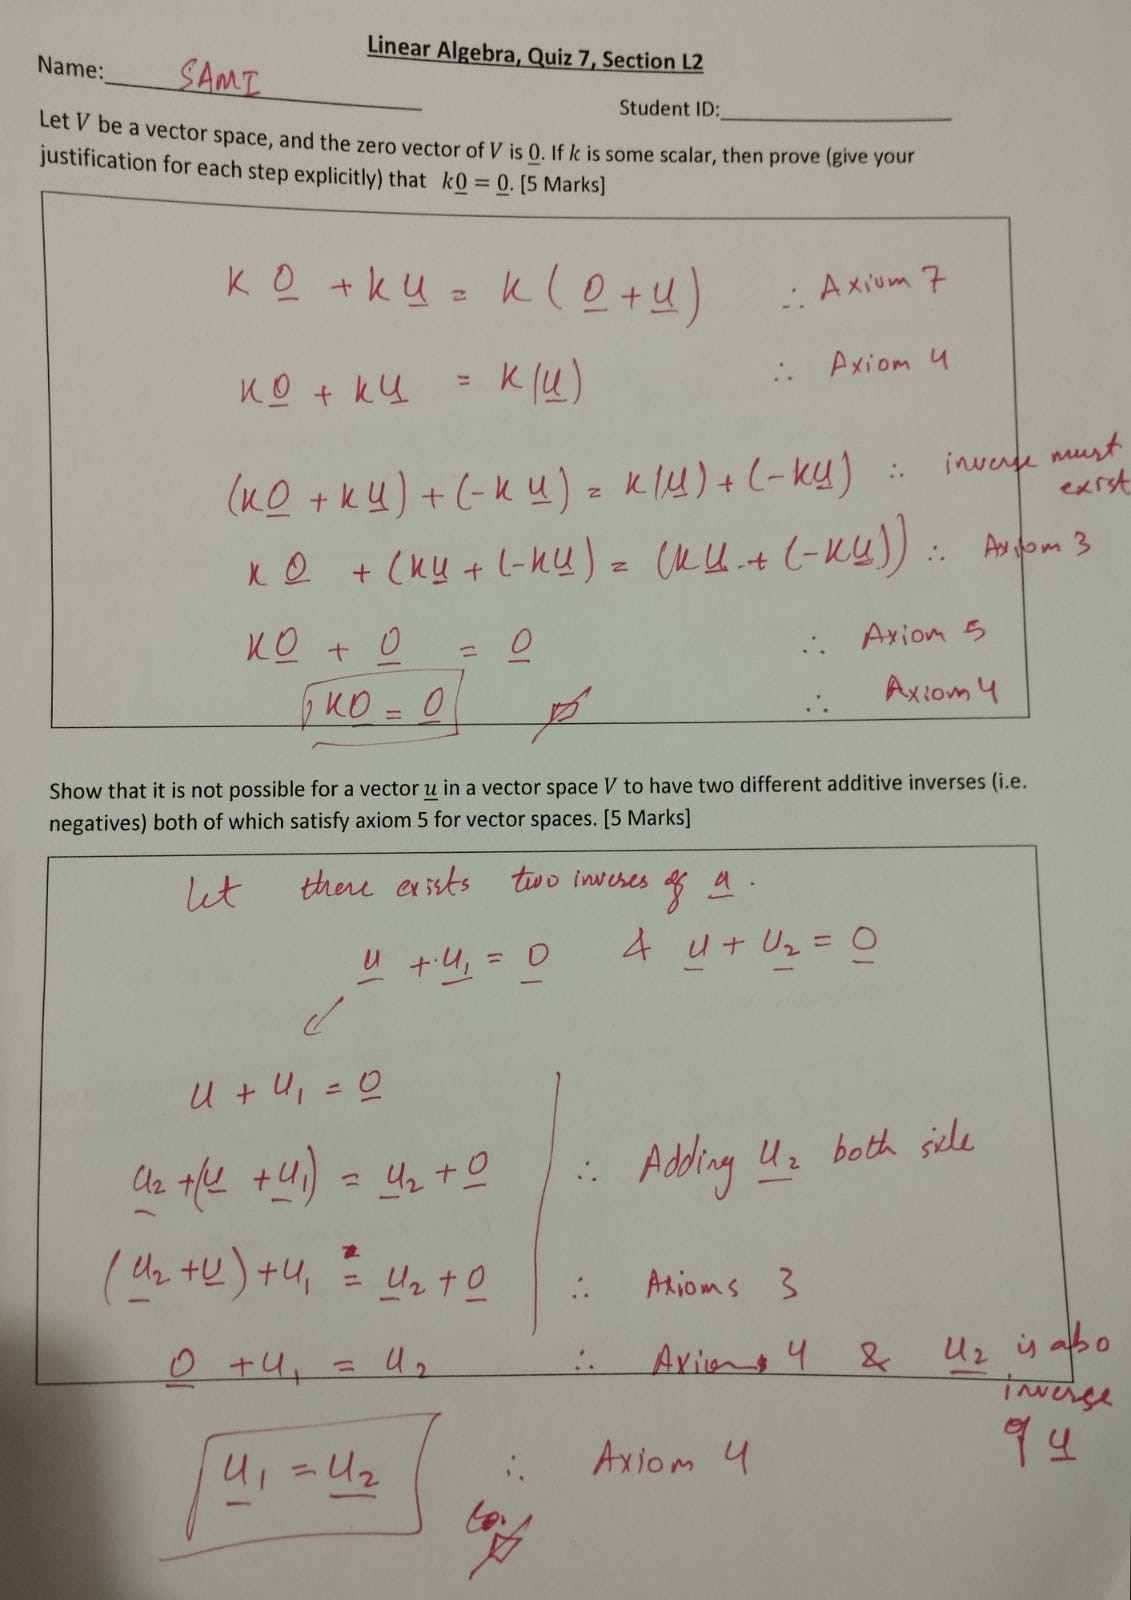 Linear Algebra, Quiz 7, Section L2
Name: SAMI
Student ID:
Let V be a vector space, and the zero vector of V is 0. If k is some scalar, then prove (give your
justification for each step explicitly) that k0 = 0. [5 Marks]
k 0 + k u = k ( 0 + u ) ∴ Axium 7
k0 + ku = k(u) ∴ Axiom 4
(k0 + ku) + (-ku) = k(u) + (-ku) ∴ inverse must
exist
k 0 + (ku + (-ku) = (ku + (-ku)) ∴ Axiom 3
k0 + 0 = 0 ∴ Axiom 5
k0 = 0 ∴ Axiom 4
Show that it is not possible for a vector u in a vector space V to have two different additive inverses (i.e.
negatives) both of which satisfy axiom 5 for vector spaces. [5 Marks]
Let there exists two inverses of u.
u + u₁ = 0 & u + u₂ = 0
u + u₁ = 0
u₂ + (u + u₁) = u₂ + 0 ∴ Adding u₂ both side
(u₂ + u) + u₁ = u₂ + 0 ∴ Axioms 3
0 + u₁ = u₂ ∴ Axioms 4 & u₂ is also
inverse
of u
u₁ = u₂ ∴ Axiom 4